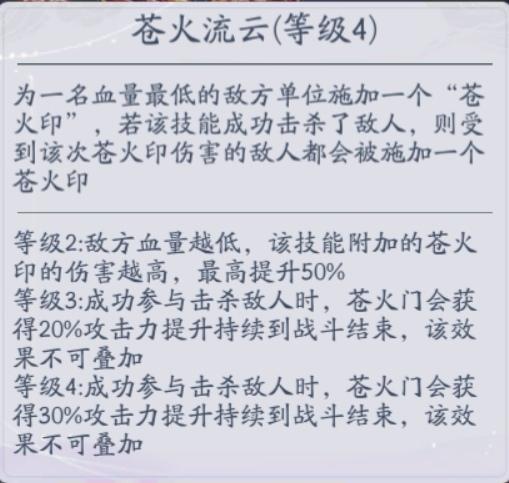 苍火流云(等级4)
为一名血量最低的敌方单位施加一个“苍
火印”，若该技能成功击杀了敌人，则受
到该次苍火印伤害的敌人都会被施加一个
苍火印
等级2:敌方血量越低，该技能附加的苍火
印的伤害越高，最高提升50%
等级3:成功参与击杀敌人时，苍火门会获
得20%攻击力提升持续到战斗结束，该效
果不可叠加
等级4:成功参与击杀敌人时，苍火门会获
得30%攻击力提升持续到战斗结束，该效
果不可叠加